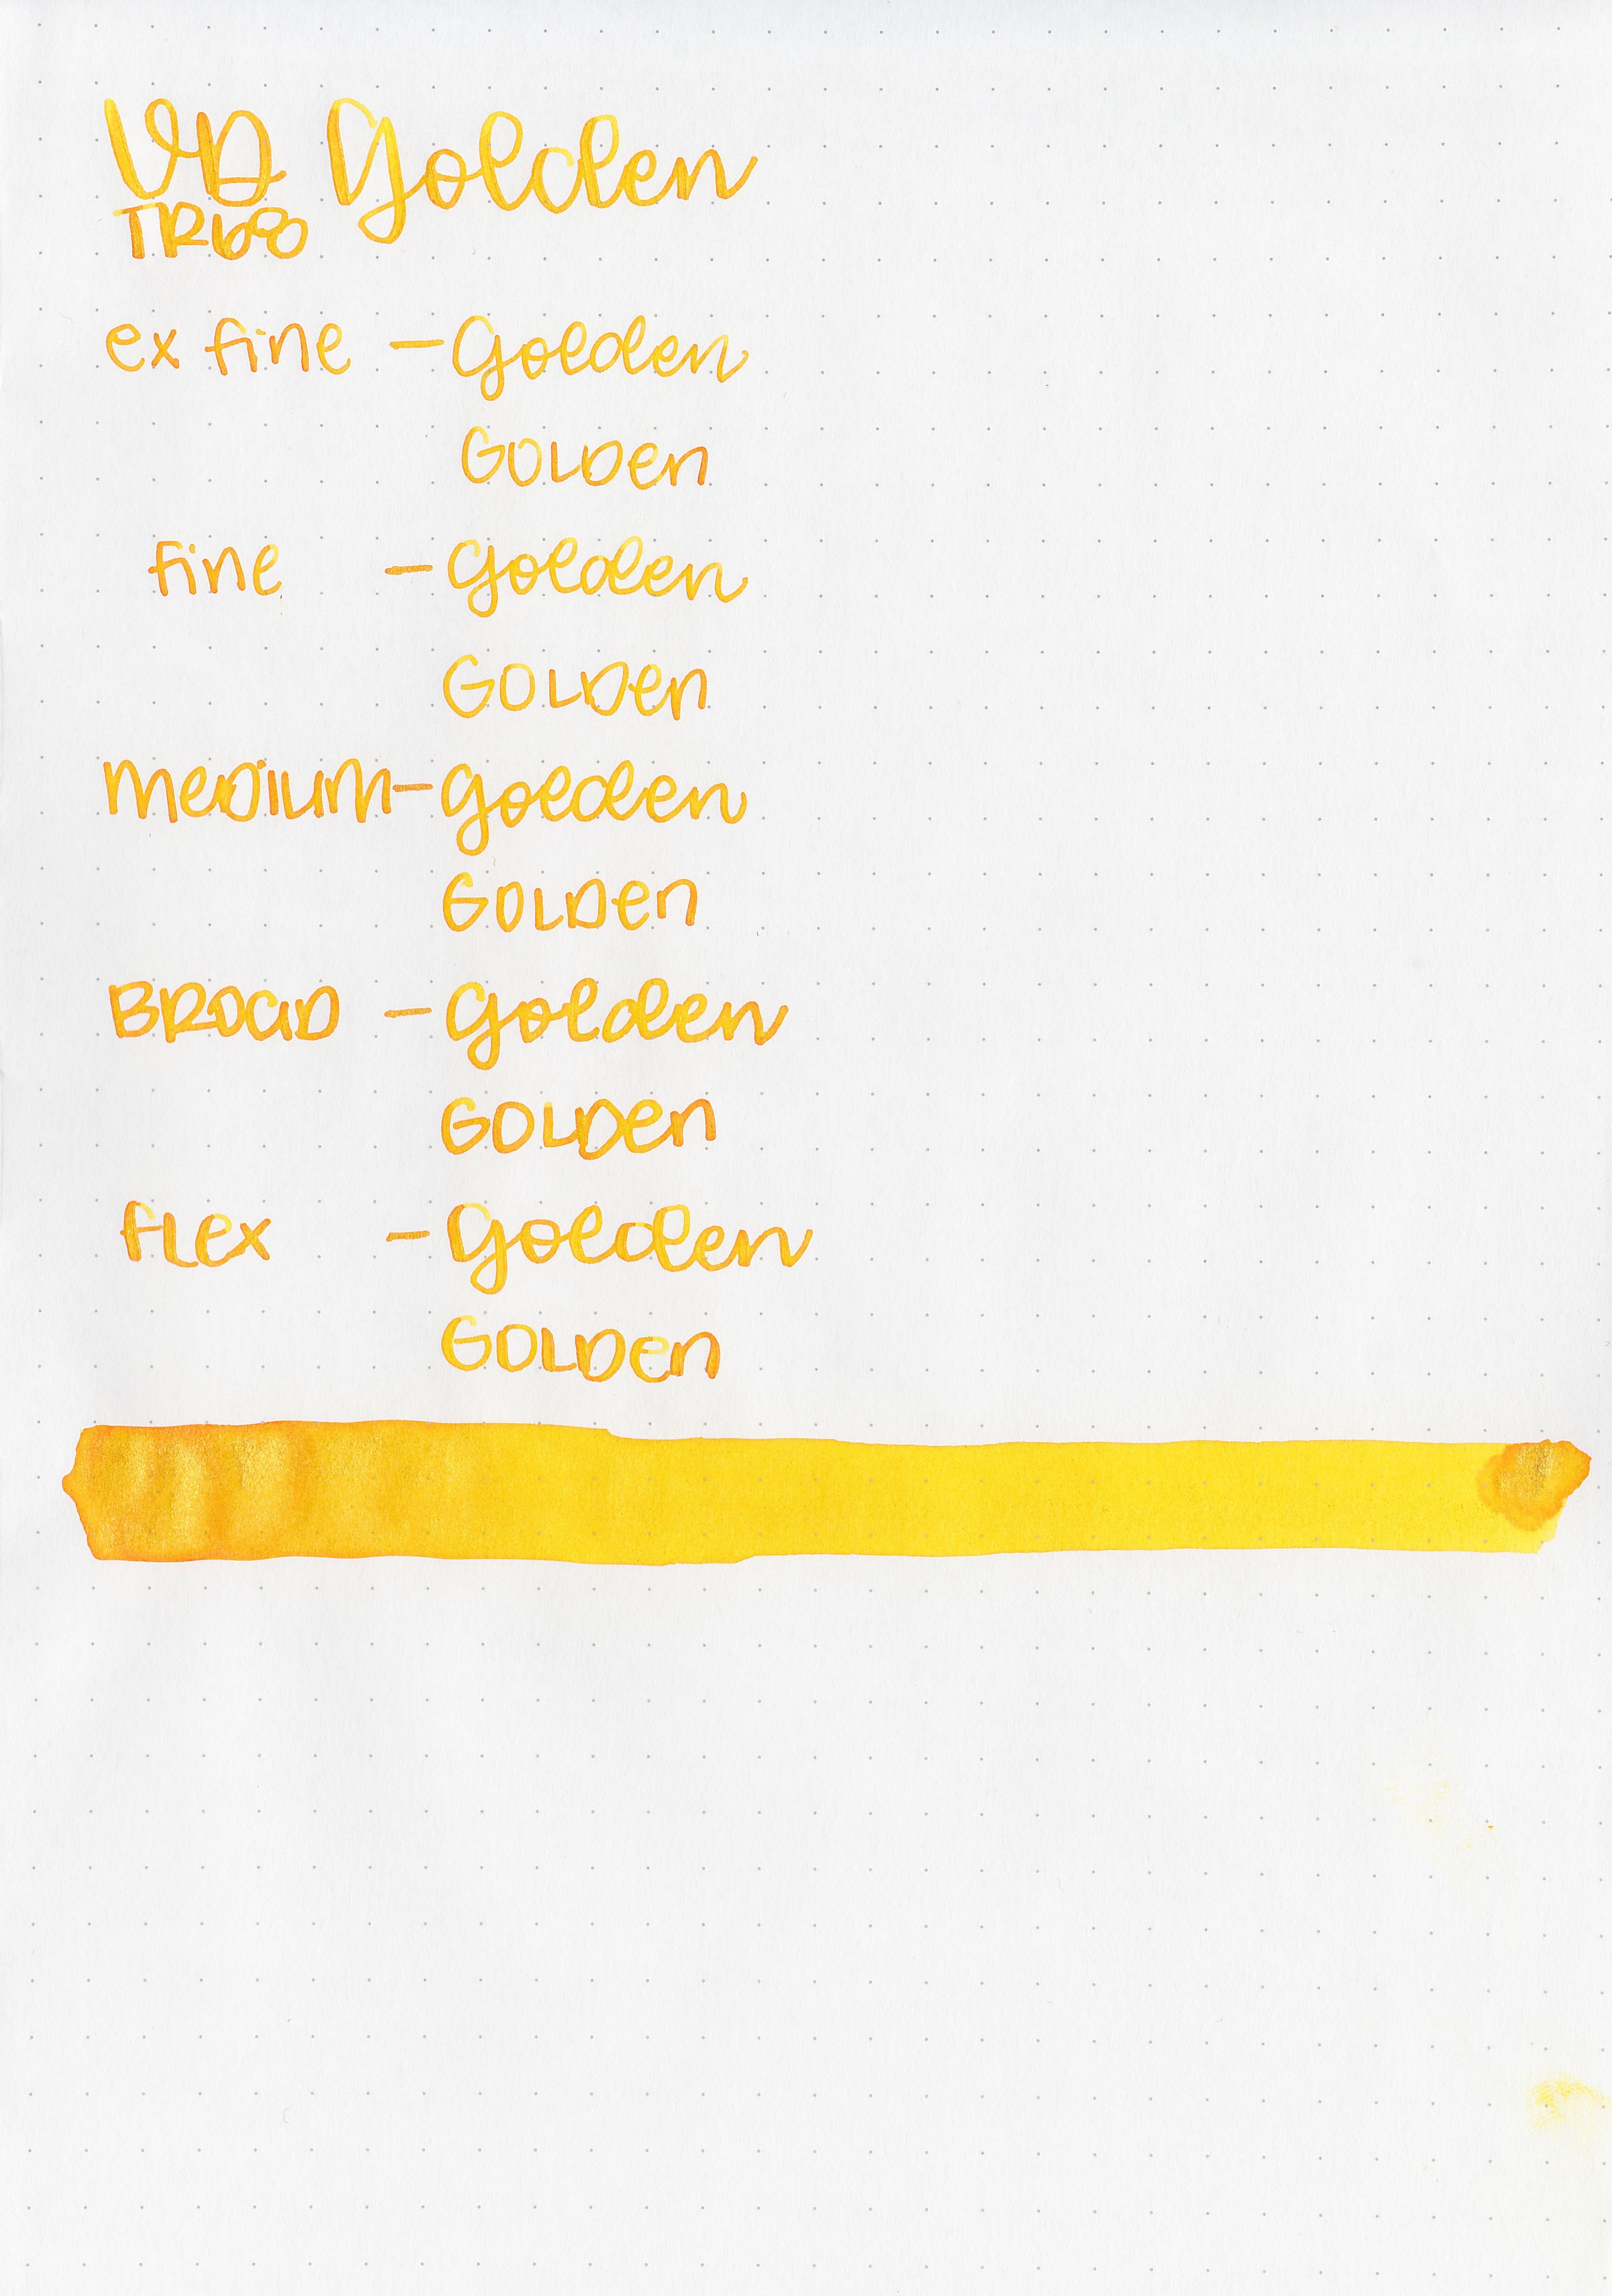 VD Golden
TR68
ex fine - Golden
GOLDen
fine - Golden
GOLDen
meDium - Golden
GOLDen
BROaD - Golden
GOLDen
fLex - Golden
GOLDen